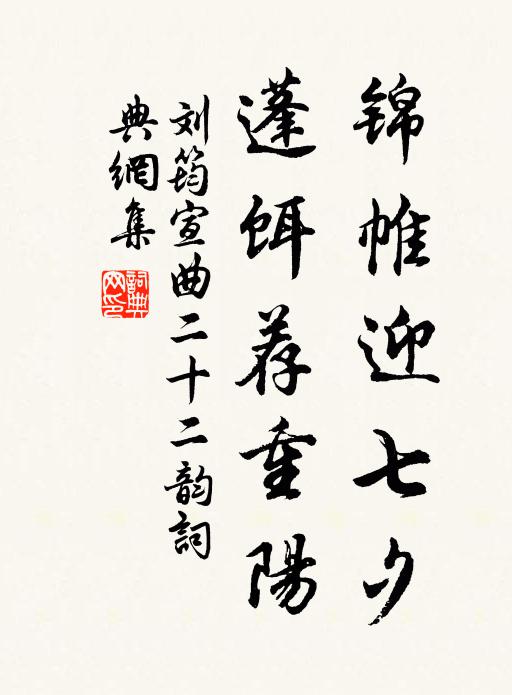 锦帷迎七夕
蓬饵荐重陽
刘筠宣曲二十二韵詞
典網集
詞典网印